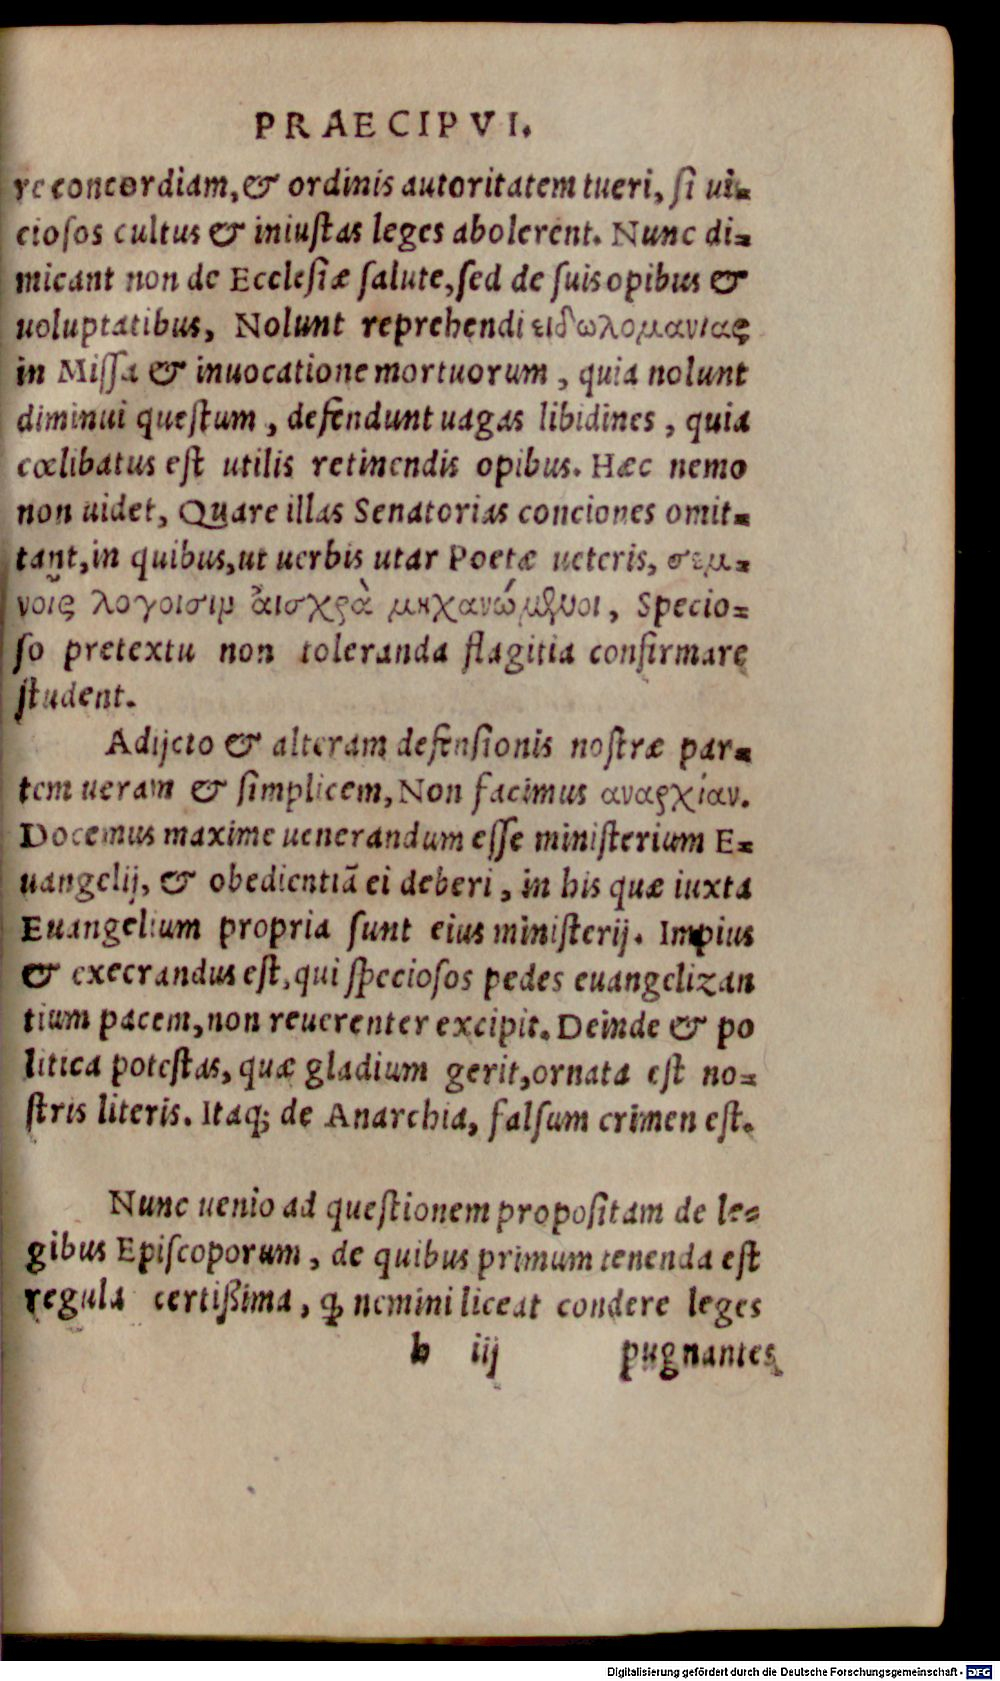 PRAECIPVI.
re concordiam, & ordinis autoritatem tueri, si ui-
ciosos cultus & iniustas leges abolerent. Nunc di-
micant non de Ecclesiæ salute, sed de suis opibus &
uoluptatibus, Nolunt reprehendi ειδωλομανιας
in Missa & inuocatione mortuorum, quia nolunt
diminui questum, defendunt uagas libidines, quia
cœlibatus est utilis retinendis opibus. Hæc nemo
non uidet, Quare illas Senatorias conciones omit-
tant, in quibus, ut uerbis utar Poetæ ueteris, σεμ-
νοις λογοισιμ ἀισχρὰ μηχανώμενοι, Specio-
so pretextu non toleranda flagitia confirmare
student.
Adijcio & alteram defensionis nostræ par-
tem ueram & simplicem, Non facimus αναρχίαν.
Docemus maxime uenerandum esse ministerium E-
uangelij, & obedientiā ei deberi, in his quæ iuxta
Euangelium propria sunt eius ministerij. Impius
& execrandus est, qui speciosos pedes euangelizan
tium pacem, non reuerenter excipit. Deinde & po
litica potestas, quæ gladium gerit, ornata est no-
stris literis. Itaq; de Anarchia, falsum crimen est.
Nunc uenio ad questionem propositam de le-
gibus Episcoporum, de quibus primum tenenda est
regula certißima, ꝙ nemini liceat condere leges
b iij pugnantes
Digitalisierung gefördert durch die Deutsche Forschungsgemeinschaft - DFG